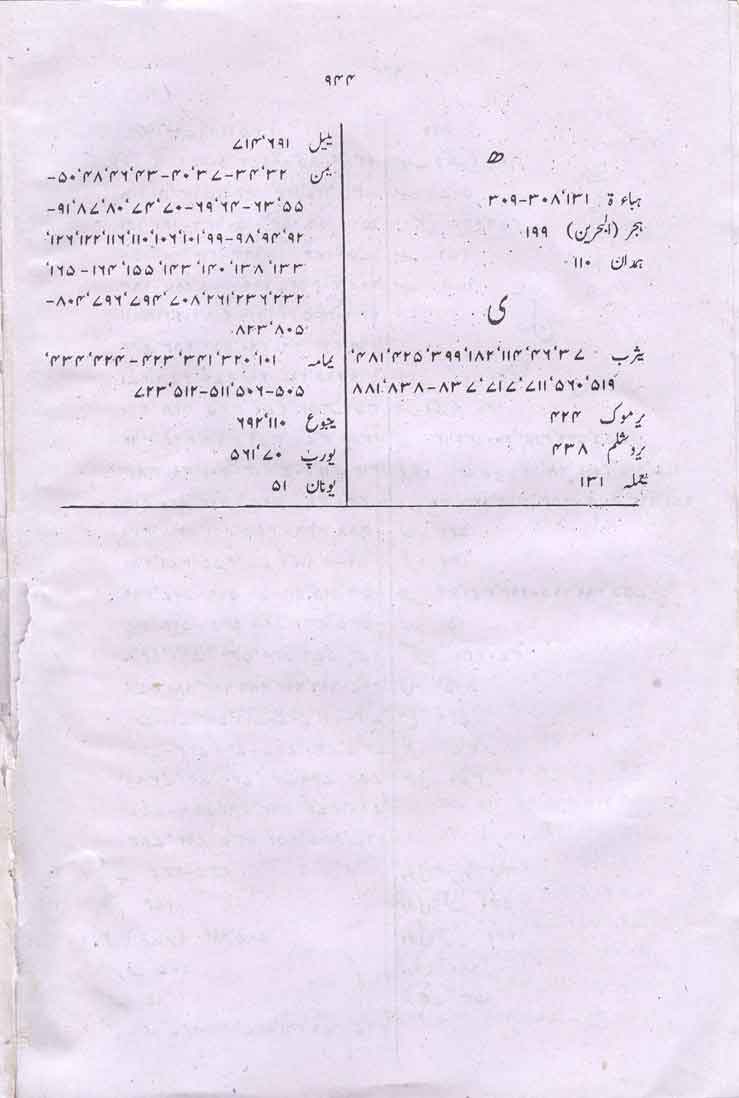 ۹۴۴
ھ
ہباءۃ ۱۳۱‘۳۰۸-۳۰۹
ہجر (البحرین) ۱۹۹
ہمدان ۱۱۰
ی
یثرب ۳۷‘۴۶‘۱۱۴‘۱۸۲‘۳۹۹‘۴۲۵‘۴۸۱‘
۵۱۹‘۵۶۰‘۷۱۱‘۷۱۷‘۸۳۷-۸۳۸‘۸۸۱
یرموک ۴۲۴
یروشلم ۴۳۸
یعملہ ۱۳۱
یلیل ۶۹۱‘۷۱۴
یمن ۳۲‘۳۴-۳۷‘۴۰-۴۳‘۴۶‘۴۸‘۵۰-
۵۵‘۶۳-۶۴‘۶۹-۷۰‘۷۴‘۸۰‘۸۷‘۹۱-
۹۲‘۹۴‘۹۸-۹۹‘۱۰۱‘۱۰۶‘۱۱۰‘۱۱۶‘۱۲۲‘۱۲۶‘
۱۳۳‘۱۳۸‘۱۴۰‘۱۴۳‘۱۵۵‘۱۶۴-۱۶۵‘
۲۳۲‘۲۳۶‘۲۶۱‘۷۰۸‘۷۹۴‘۷۹۶‘۸۰۴-
۸۰۵‘۸۲۳
یمامہ ۱۰۱‘۳۲۰‘۳۴۱‘۴۲۳-۴۲۴‘۴۳۴‘
۵۰۵-۵۰۶‘۵۱۱-۵۱۲‘۷۲۳
ینبوع ۱۱۰‘۶۹۲
یورپ ۷۰‘۵۶۱
یونان ۵۱